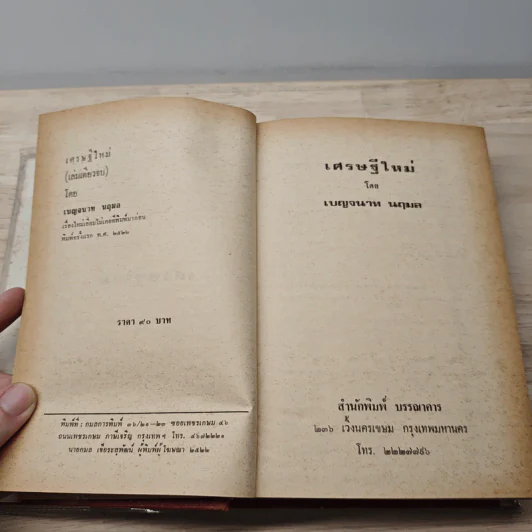 เศรษฐีใหม่
(เล่มเดียวจบ)
โดย
เบญจนาท นฤมล
เรื่องใหม่เอี่ยมไม่เคยตีพิมพ์มาก่อน
พิมพ์ครั้งแรก พ.ศ. ๒๕๒๒
ราคา ๙๐ บาท
พิมพ์ที่ : กมลการพิมพ์ ๓๖/๒๑–๒๓ ซอยเพชรเกษม ๔๖
ถนนเพชรเกษม ภาษีเจริญ กรุงเทพฯ โทร.
นายกมล ผู้พิมพ์ผู้โฆษณา ๒๕๒๒
เศรษฐีใหม่
โดย
เบญจนาท นฤมล
สำนักพิมพ์ บรรณาคาร
๒๓๖ เวิ้งนครเขษม กรุงเทพมหานคร
โทร. ๒๒๒๗๗๕๖